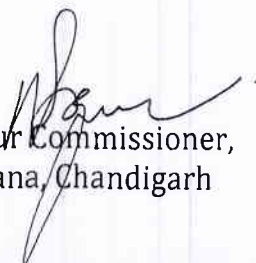 ur Commissioner,
ana, Chandigarh